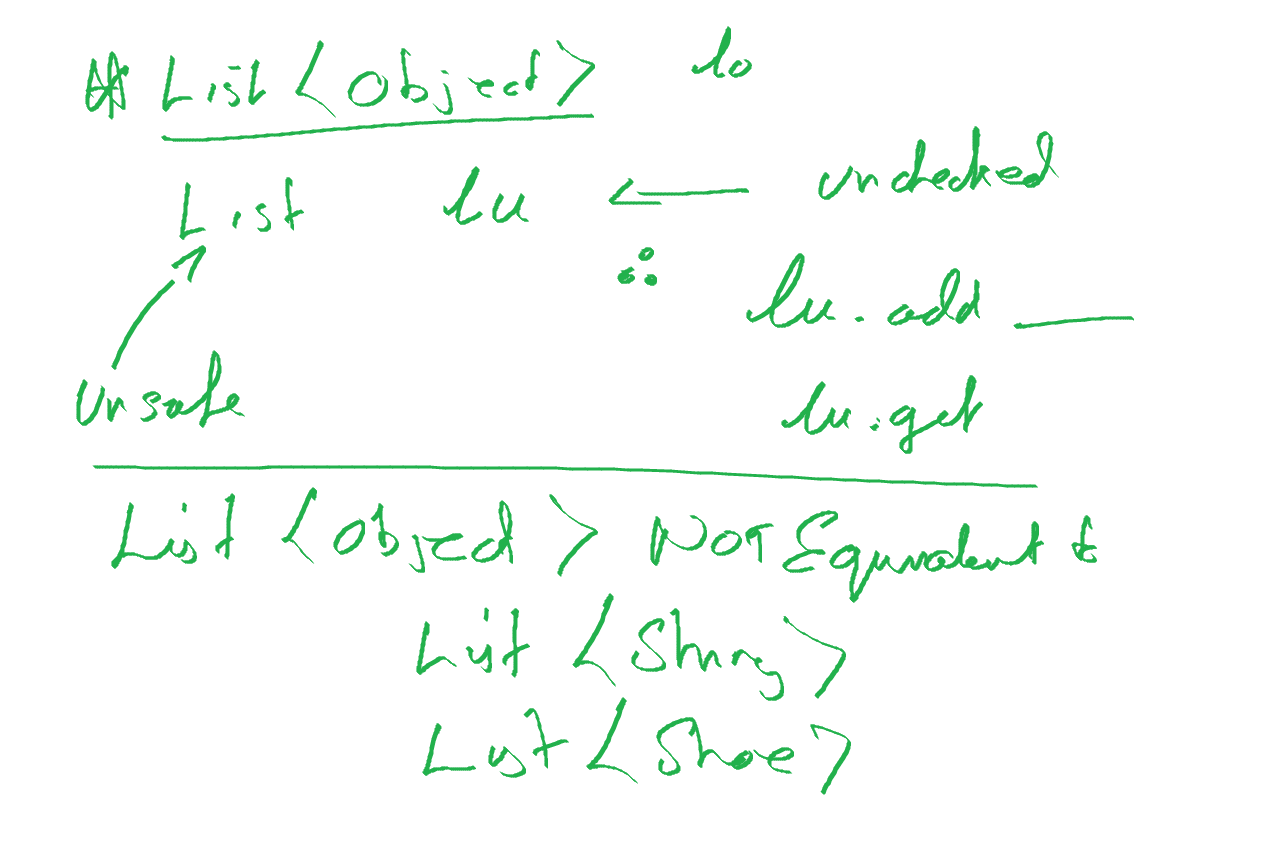 List <Object> lo
List lu ← unchecked
∴ lu.add —
unsafe lu.get
List <Object> NOT Equivalent to
List <String>
List <Shoe>